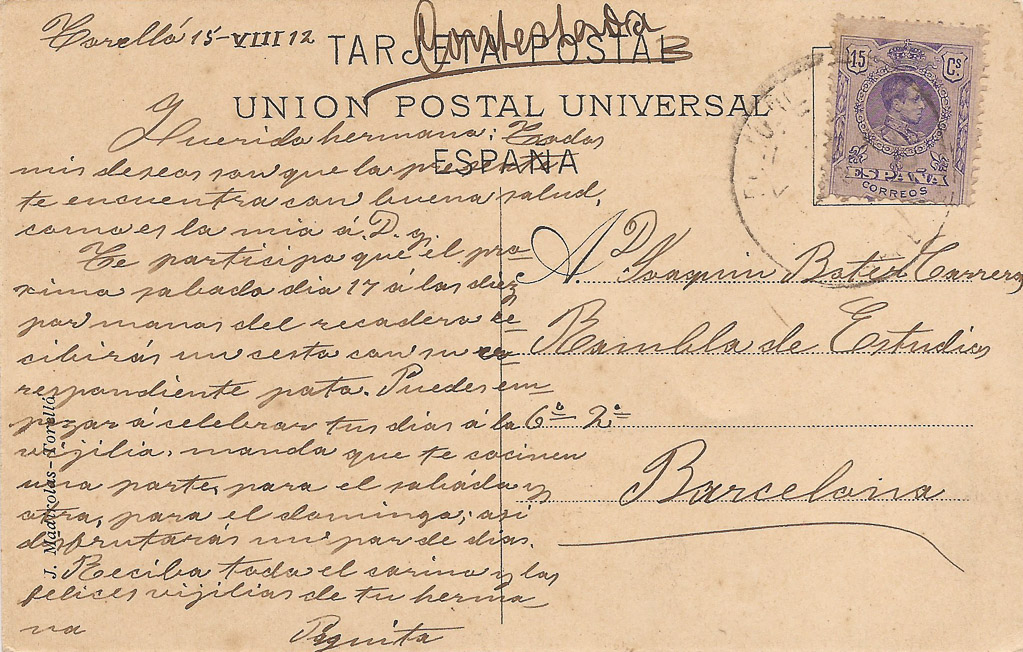 Torelló 15-VIII 12
Contestada
TARJETA POSTAL
UNION POSTAL UNIVERSAL
ESPAÑA
15 Cs
ESPAÑA
CORREOS
Querida hermana: Todos
mis deseos son que la presente
te encuentra con buena salud,
como es la mia á. D. g.
Te participo que el pro-
ximo sabado dia 17 á las diez
por manos del recadero re-
cibirás un cesto con su co
rrespondiente pato. Puedes em-
pezar á celebrar tus dias á la
vigilia, manda que te cocinen
una parte, para el sabádo y
otra, para el domingo; asi
disfrutarás un par de dias.
Reciba todo el carino y las
felices vigilias de tu herma-
na
Paquita
A. Dn Joaquin Boter Carrera
Rambla de Estudios
6º 2º
Barcelona
J. Madirolas-Torelló